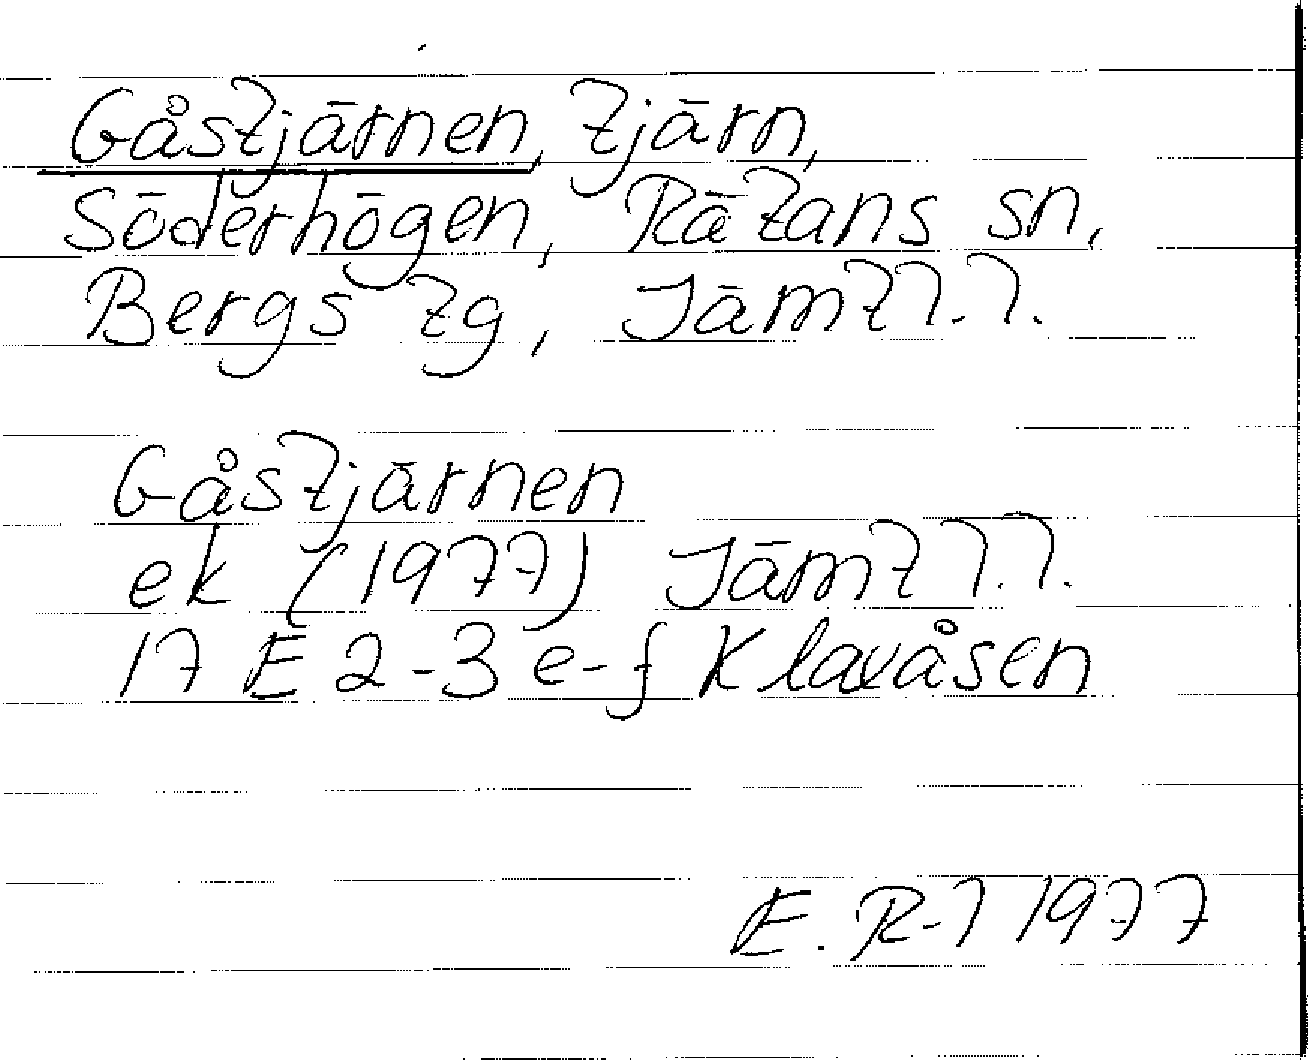 Gåstjärnen, tjärn,
Söderhögen, Rätans sn,
Bergs tg, Jämtl.l.
Gåstjärnen
ek (1977) Jämtl.l.
17 E 2-3 e-f Klaxåsen
E. R-l 1977